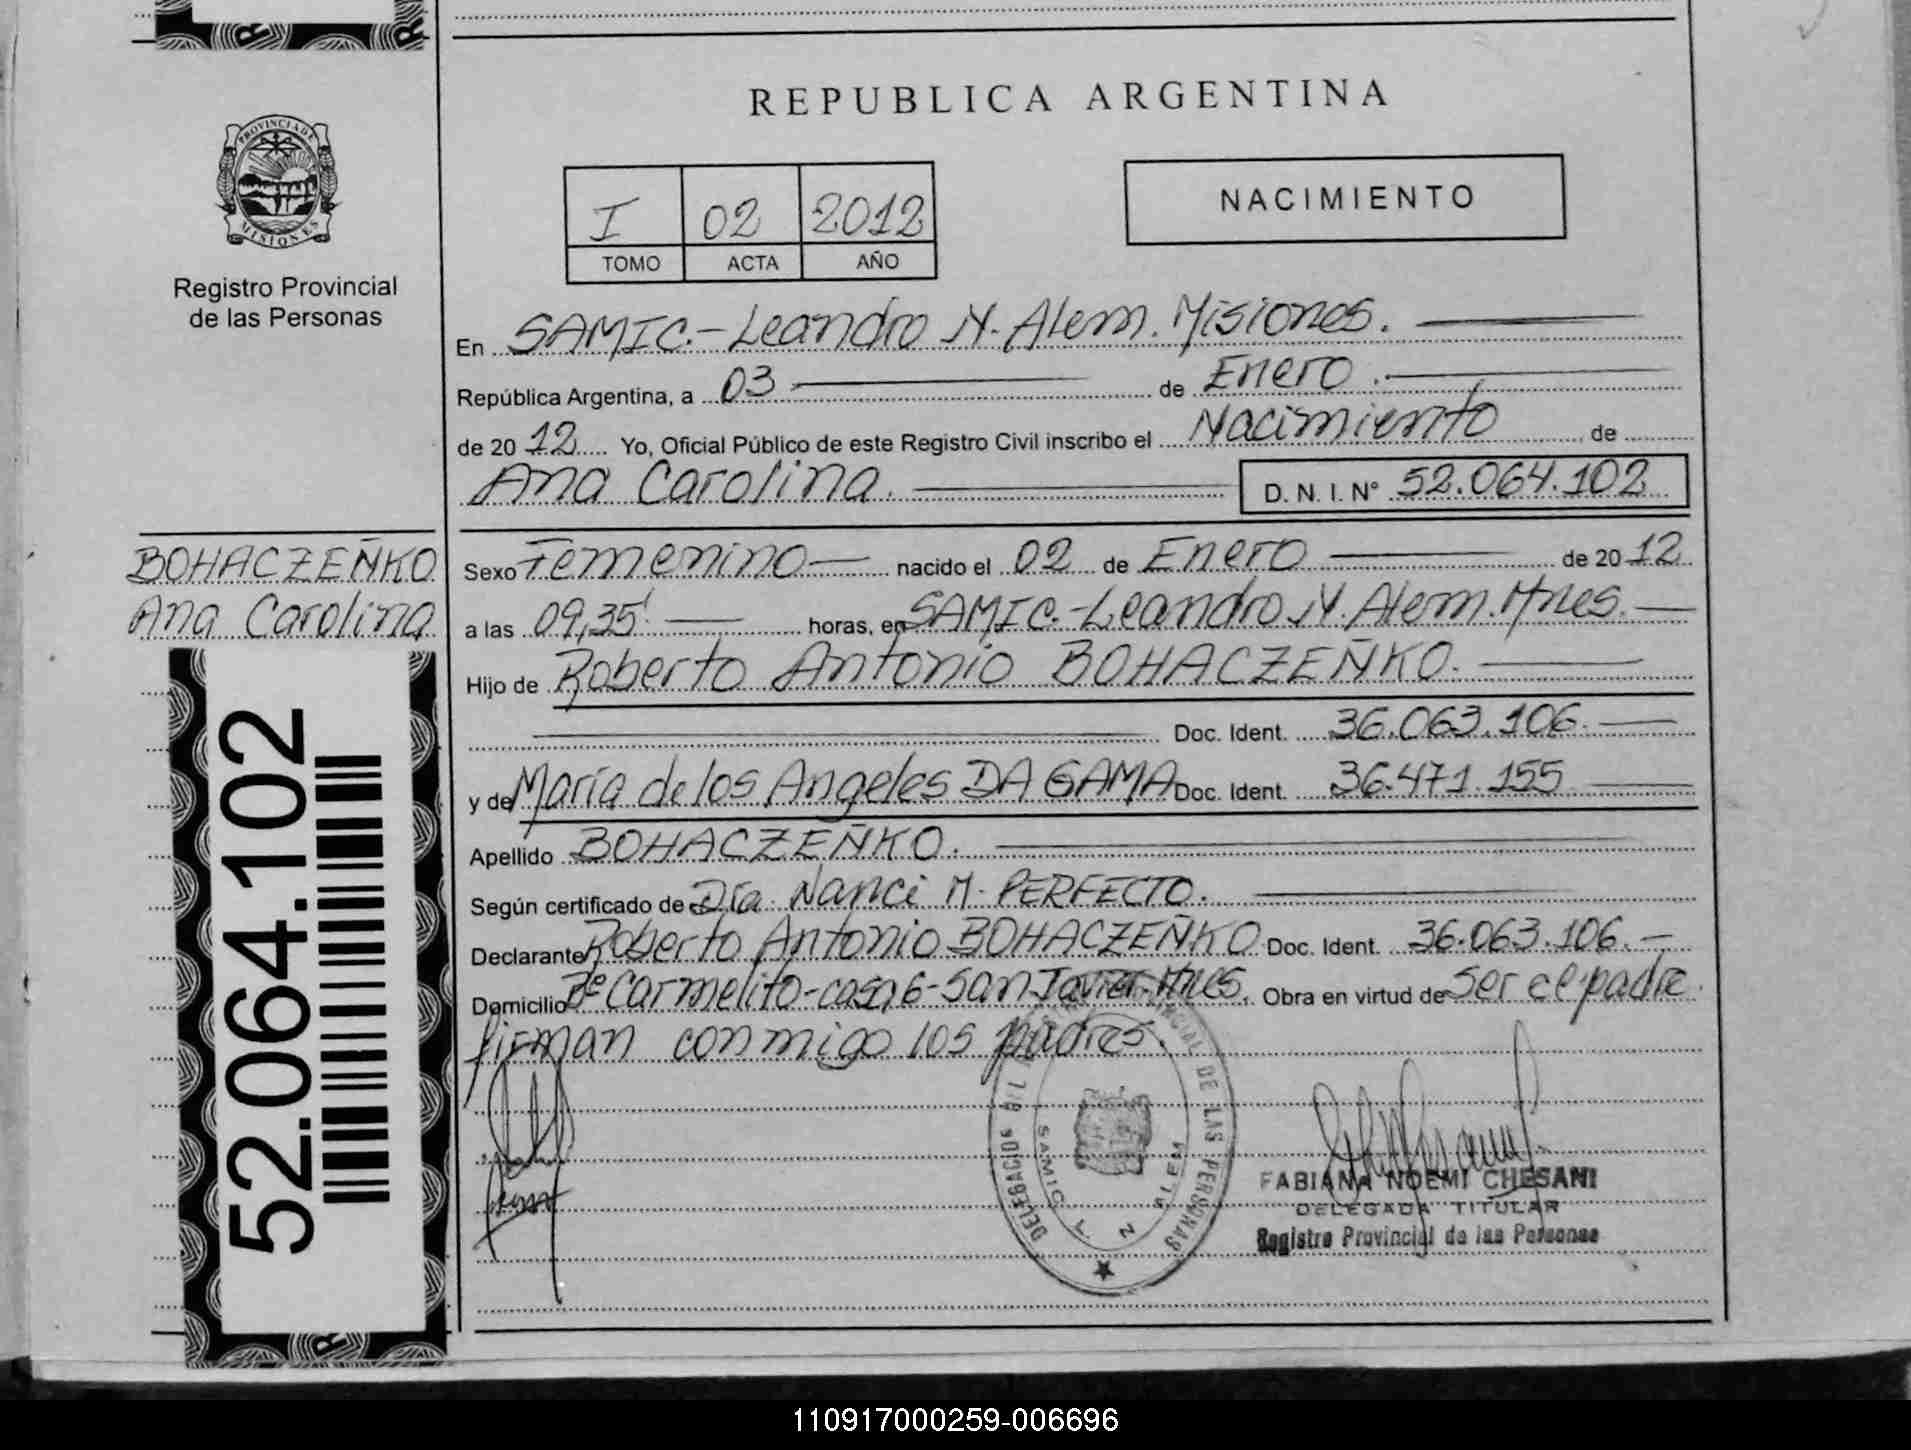 REPUBLICA ARGENTINA
PROVINCIA DE
MISIONES
Registro Provincial
de las Personas
I 02 2012
TOMO ACTA AÑO
NACIMIENTO
En SAMIC.-Leandro N. Alem. Misiones.
República Argentina, a 03 de Enero.
de 2012 Yo, Oficial Público de este Registro Civil inscribo el Nacimiento de
Ana Carolina. D. N. I. Nº 52.064.102
BOHACZEÑKO
Ana Carolina
52.064.102
Sexo Femenino nacido el 02 de Enero de 2012
a las 09,35' horas, en SAMIC.-Leandro N. Alem. Mnes.
Hijo de Roberto Antonio BOHACZEÑKO.
Doc. Ident. 36.063.106.
y de María de los Angeles DA GAMA Doc. Ident. 36.471.155
Apellido BOHACZEÑKO.
Según certificado de Dra. Nanci M. PERFECTO.
Declarante Roberto Antonio BOHACZEÑKO. Doc. Ident. 36.063.106.-
Domicilio Bº Carmelito-casa 6-San Javier-Mnes. Obra en virtud de ser el padre.
firman conmigo los padres.
DELEGACION DEL PROVINCIAL DE LAS PERSONAS
SAMIC L. N. ALEM
FABIANA NOEMI CHESANI
DELEGADA TITULAR
Registro Provincial de las Personas
110917000259-006696